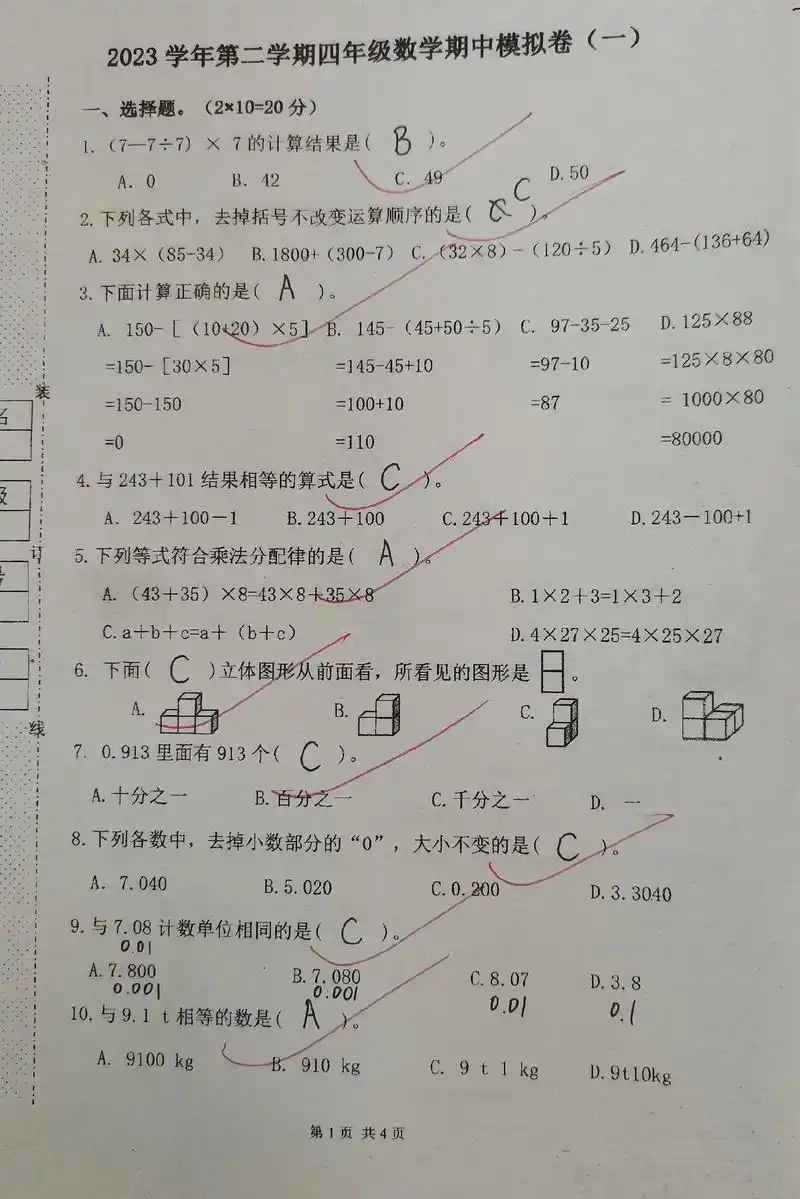 2023 学年第二学期四年级数学期中模拟卷（一）
一、选择题。（2×10=20 分）
1.（7—7÷7）× 7 的计算结果是( B )。
A. 0 B. 42 C. 49 D. 50
2.下列各式中，去掉括号不改变运算顺序的是( C )。
A. 34×（85-34） B.1800+（300-7） C.（32×8）-（120÷5） D.464-(136+64)
3.下面计算正确的是( A )。
A. 150-［（10+20）×5］ B. 145-（45+50÷5） C. 97-35-25 D.125×88
=150-［30×5］ =145-45+10 =97-10 =125×8×80
=150-150 =100+10 =87 = 1000×80
=0 =110 =80000
4.与 243＋101 结果相等的算式是( C )。
A. 243＋100－1 B.243＋100 C.243＋100＋1 D.243－100+1
5.下列等式符合乘法分配律的是( A )。
A.（43＋35）×8=43×8＋35×8 B.1×2＋3=1×3＋2
C.a＋b＋c=a＋（b＋c） D.4×27×25=4×25×27
6. 下面( C )立体图形从前面看，所看见的图形是 。
A. B. C. D.
7. 0.913 里面有 913 个( C )。
A.十分之一 B.百分之一 C.千分之一 D. 一
8.下列各数中，去掉小数部分的“0”，大小不变的是( C )。
A. 7.040 B.5.020 C.0.200 D.3.3040
9.与 7.08 计数单位相同的是( C )。
0.01
A.7.800 B.7.080 C.8.07 D.3.8
0.001 0.001 0.01 0.1
10.与 9.1 t 相等的数是( A )。
A. 9100 kg B. 910 kg C. 9 t 1 kg D.9t10kg
第 1 页 共 4 页
装
订
线
名
级